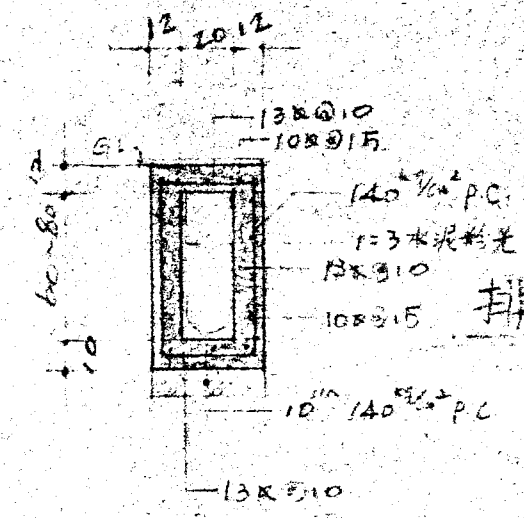 12 20 12
13∅@10
10∅@15
GL
12
60~80
10
140 kg/cm² P.C.
1=3水泥粉光
13∅@10
10∅@15
10 cm 140 kg/cm² P.C
13∅@10